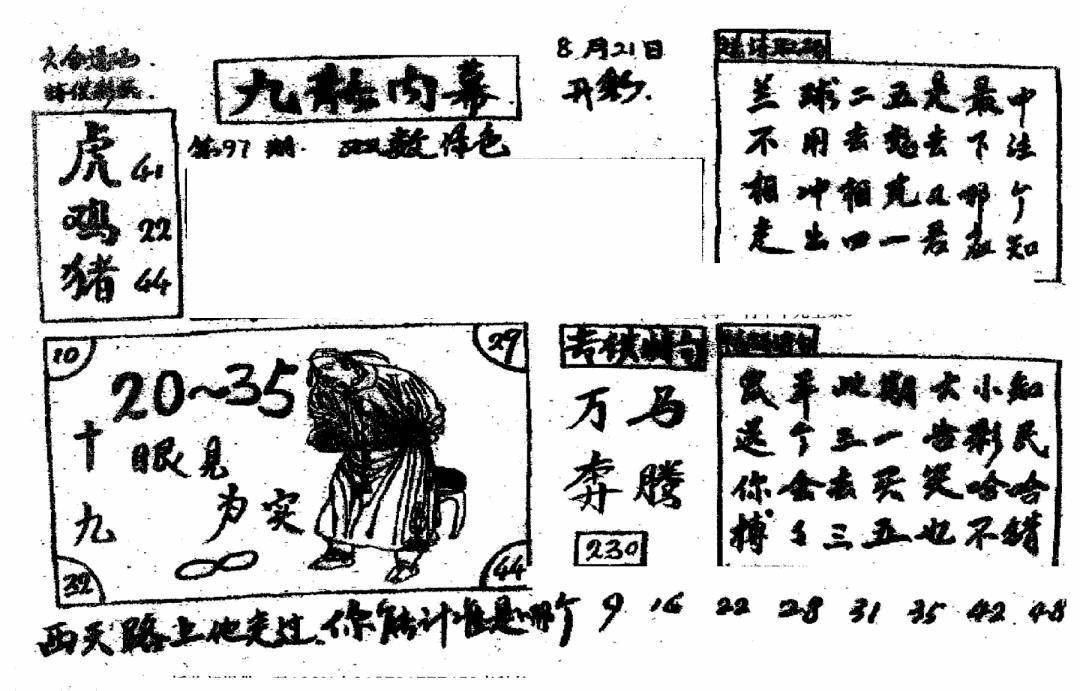 8月21日
开彩.
九龙内幕
第97期. 双数绿色
虎 41
鸡 22
猪 44
兰球二五是最中
不用去愁去下注
相冲相克及哪个
走出四一君应知
10
29
20~35
十九
眼见为实
32
44
万马
奔腾
230
鼠羊此期大小知
送个三一告彩民
你会去买笑哈哈
搏之三五也不错
西天路上他走过.你能计准是哪个
9 16 22 28 31 35 42 48